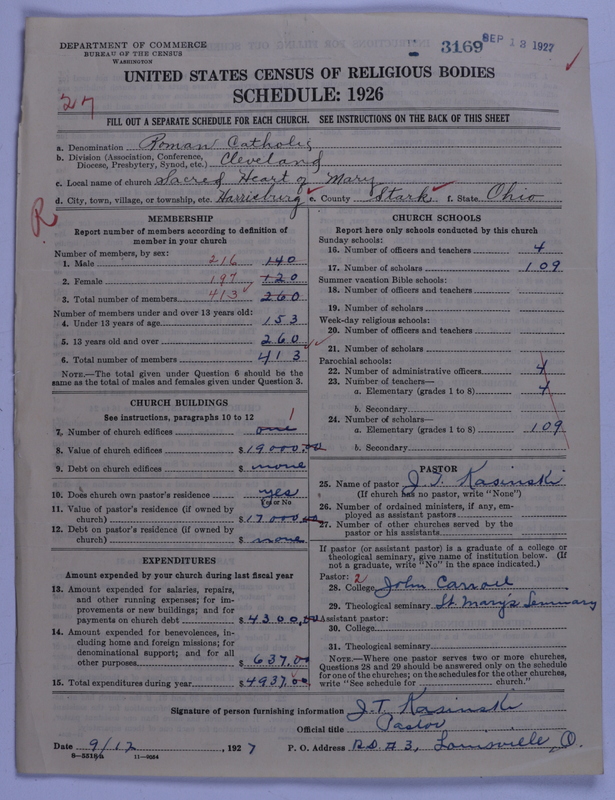 DEPARTMENT OF COMMERCE
BUREAU OF THE CENSUS
WASHINGTON
3169
SEP 13 1927
UNITED STATES CENSUS OF RELIGIOUS BODIES
SCHEDULE: 1926
27
FILL OUT A SEPARATE SCHEDULE FOR EACH CHURCH. SEE INSTRUCTIONS ON THE BACK OF THIS SHEET
a. Denomination Roman Catholic
b. Division (Association, Conference, Diocese, Presbytery, Synod, etc.) Cleveland
c. Local name of church Sacred Heart of Mary
d. City, town, village, or township, etc. Harrisburg e. County Stark f. State Ohio
R
MEMBERSHIP
Report number of members according to definition of
member in your church
Number of members, by sex:
1. Male 216 140
2. Female 197 120
3. Total number of members 413 260
Number of members under and over 13 years old:
4. Under 13 years of age 153
5. 13 years old and over 260
6. Total number of members 413
NOTE.—The total given under Question 6 should be the
same as the total of males and females given under Question 3.
CHURCH BUILDINGS
See instructions, paragraphs 10 to 12
7. Number of church edifices one 1
8. Value of church edifices $ 19000.00
9. Debt on church edifices $ none
10. Does church own pastor's residence yes
(Yes or No)
11. Value of pastor's residence (if owned by
church) $ 17000.00
12. Debt on pastor's residence (if owned by
church) $ none
EXPENDITURES
Amount expended by your church during last fiscal year
13. Amount expended for salaries, repairs,
and other running expenses; for im-
provements or new buildings; and for
payments on church debt $ 4300.00
14. Amount expended for benevolences, in-
cluding home and foreign missions; for
denominational support; and for all
other purposes $ 637.00
15. Total expenditures during year $ 4937.00
CHURCH SCHOOLS
Report here only schools conducted by this church
Sunday schools:
16. Number of officers and teachers 4
17. Number of scholars 109
Summer vacation Bible schools:
18. Number of officers and teachers
19. Number of scholars
Week-day religious schools:
20. Number of officers and teachers
21. Number of scholars
Parochial schools:
22. Number of administrative officers 4
23. Number of teachers—
a. Elementary (grades 1 to 8) 4
b. Secondary
24. Number of scholars—
a. Elementary (grades 1 to 8) 109
b. Secondary
PASTOR
25. Name of pastor J. T. Kasinski
(If church has no pastor, write "None")
26. Number of ordained ministers, if any, em-
ployed as assistant pastors
27. Number of other churches served by the
pastor or his assistants
If pastor (or assistant pastor) is a graduate of a college or
theological seminary, give name of institution below. (If
not a graduate, write "No" in the space indicated.)
Pastor: 2
28. College John Carroll
29. Theological seminary St. Mary's Seminary
Assistant pastor:
30. College
31. Theological seminary
NOTE.—Where one pastor serves two or more churches,
Questions 28 and 29 should be answered only on the schedule
for one of the churches; on the schedules for the other churches,
write "See schedule for church."
Signature of person furnishing information J. T. Kasinski
Official title Pastor
Date 9/12, 1927 P. O. Address R.D. #3, Louisville, O.
8-5518a 11-9064